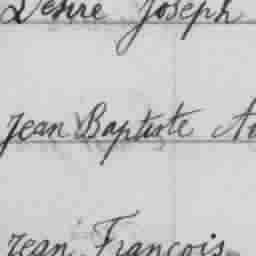 Désiré Joseph
Jean Baptiste
Jean François